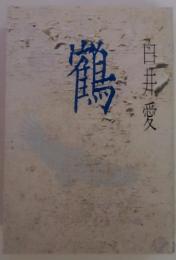 鶴
白井愛